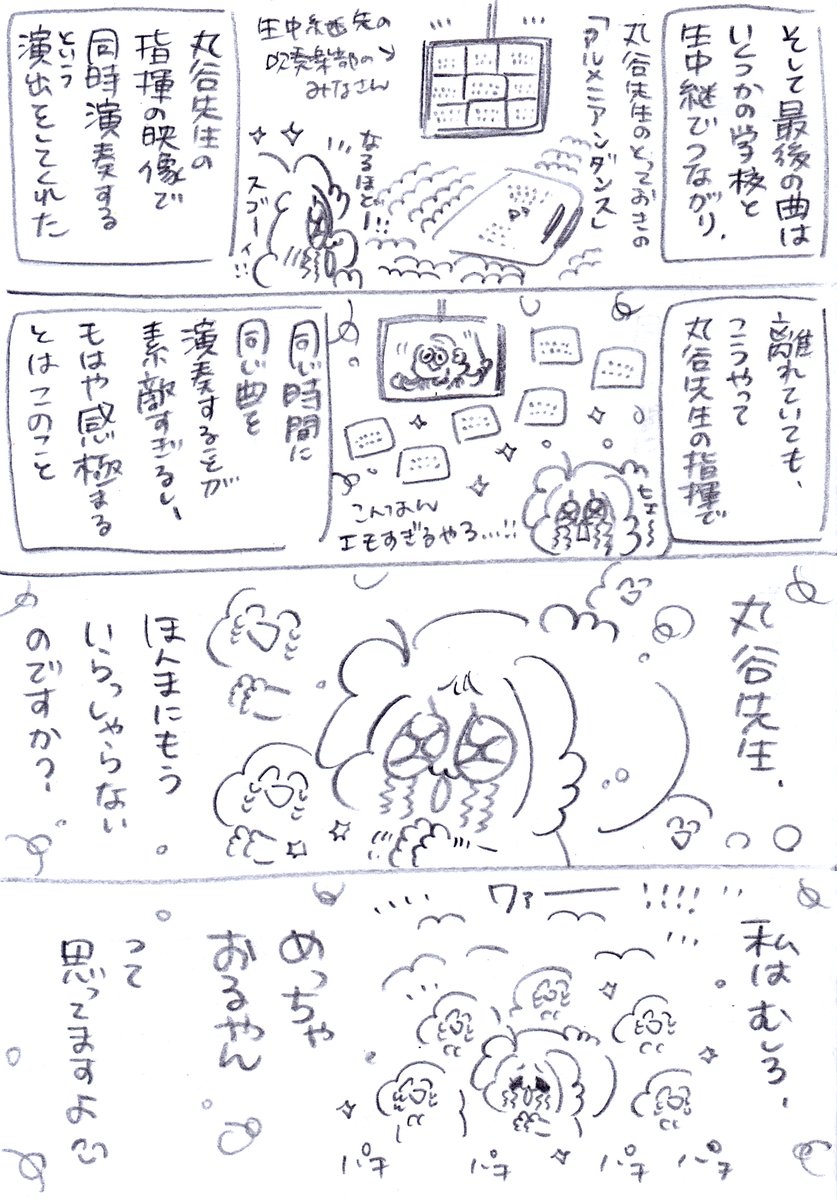 そして最後の曲は
いくつかの学校と
生中継でつながり、
丸谷先生のとっておきの
「アルメニアンダンス」
生中継先の
吹奏楽部の
みなさん
なるほどー!!
スゴーイ!!
丸谷先生の
指揮の映像で
同時演奏する
という
演出をしてくれた
離れていても、
こうやって
丸谷先生の指揮で
ヒェ〜
こんなん
エモすぎるやろ…!!
同じ時間に
同じ曲を
演奏することが
素敵すぎるし、
もはや感極まる
とはこのこと
丸谷先生、
ほんまにもう
いらっしゃらない
のですか?
ワァーーー!!!!
私はむしろ、
めっちゃ
おるやん
って
思ってますよ
パチ
パチ
パチ
パチ